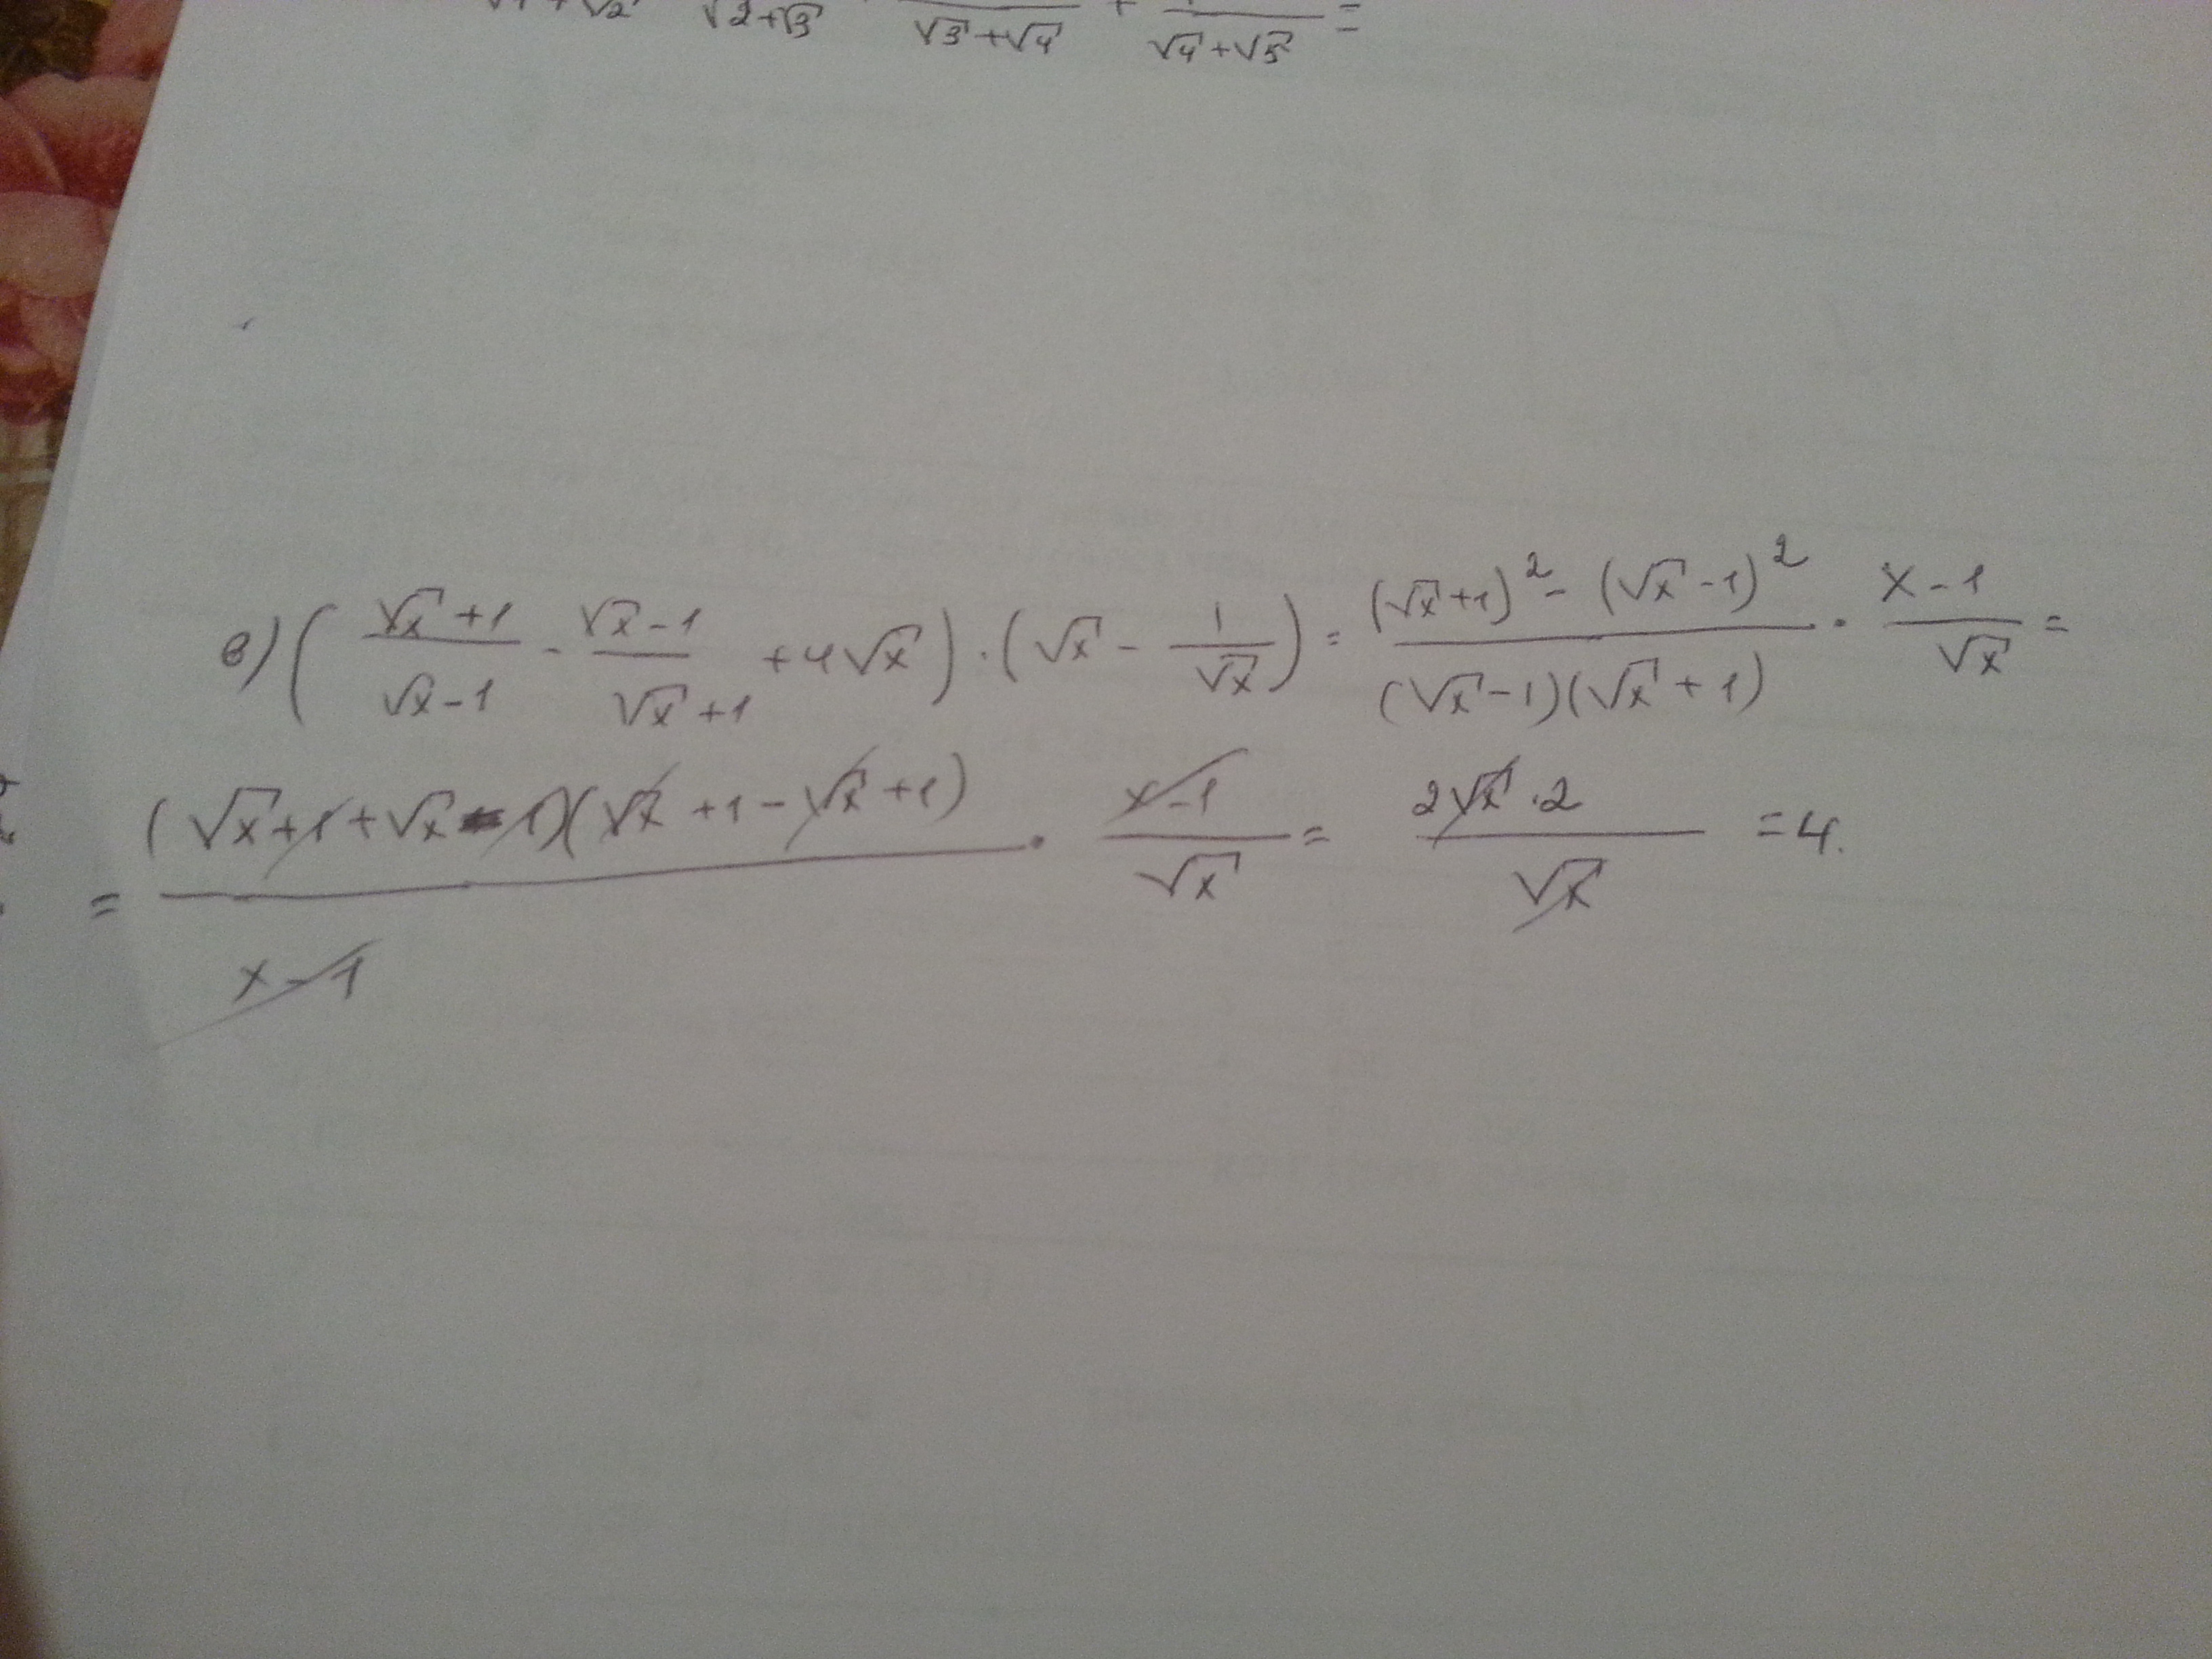 √2 √2+√3 √3+√4 + √4+√5 =
в) ( (√x+1)/(√x-1) - (√x-1)/(√x+1) + 4√x ) · (√x - 1/√x) = ((√x+1)² - (√x-1)²)/((√x-1)(√x+1)) · (x-1)/√x =
= ((√x+1+√x-1)(√x+1-√x+1))/(x-1) · (x-1)/√x = (2√x·2)/√x = 4.